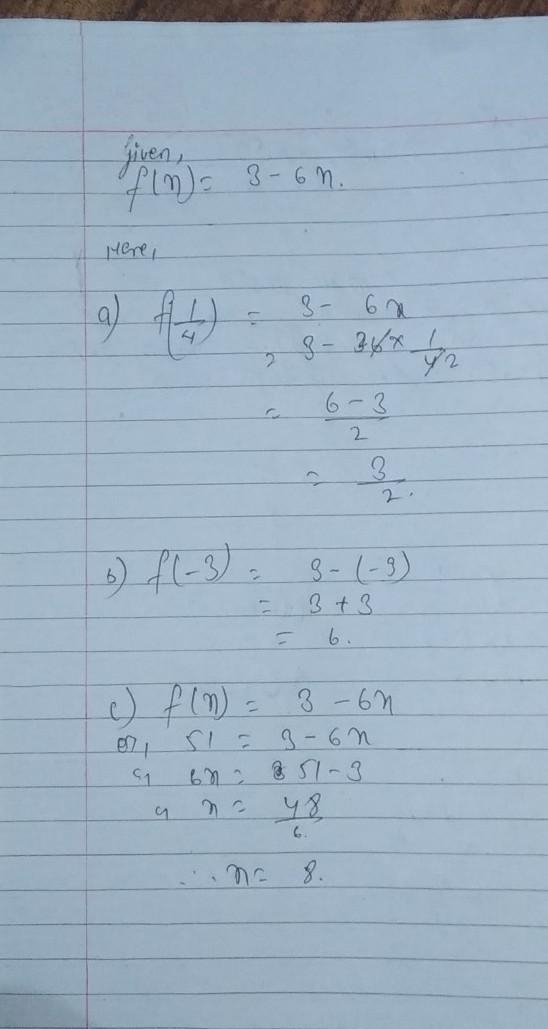 given,
f(x) = 3 - 6x.
Here,
a) f(1/4) = 3 - 6x
= 3 - 36 × 1/42
= 6 - 3/2
= 3/2.
b) f(-3) = 3 - (-3)
= 3 + 3
= 6.
c) f(x) = 3 - 6x
or, 51 = 3 - 6x
6x = 51 - 3
x = 48/6.
∴ x = 8.